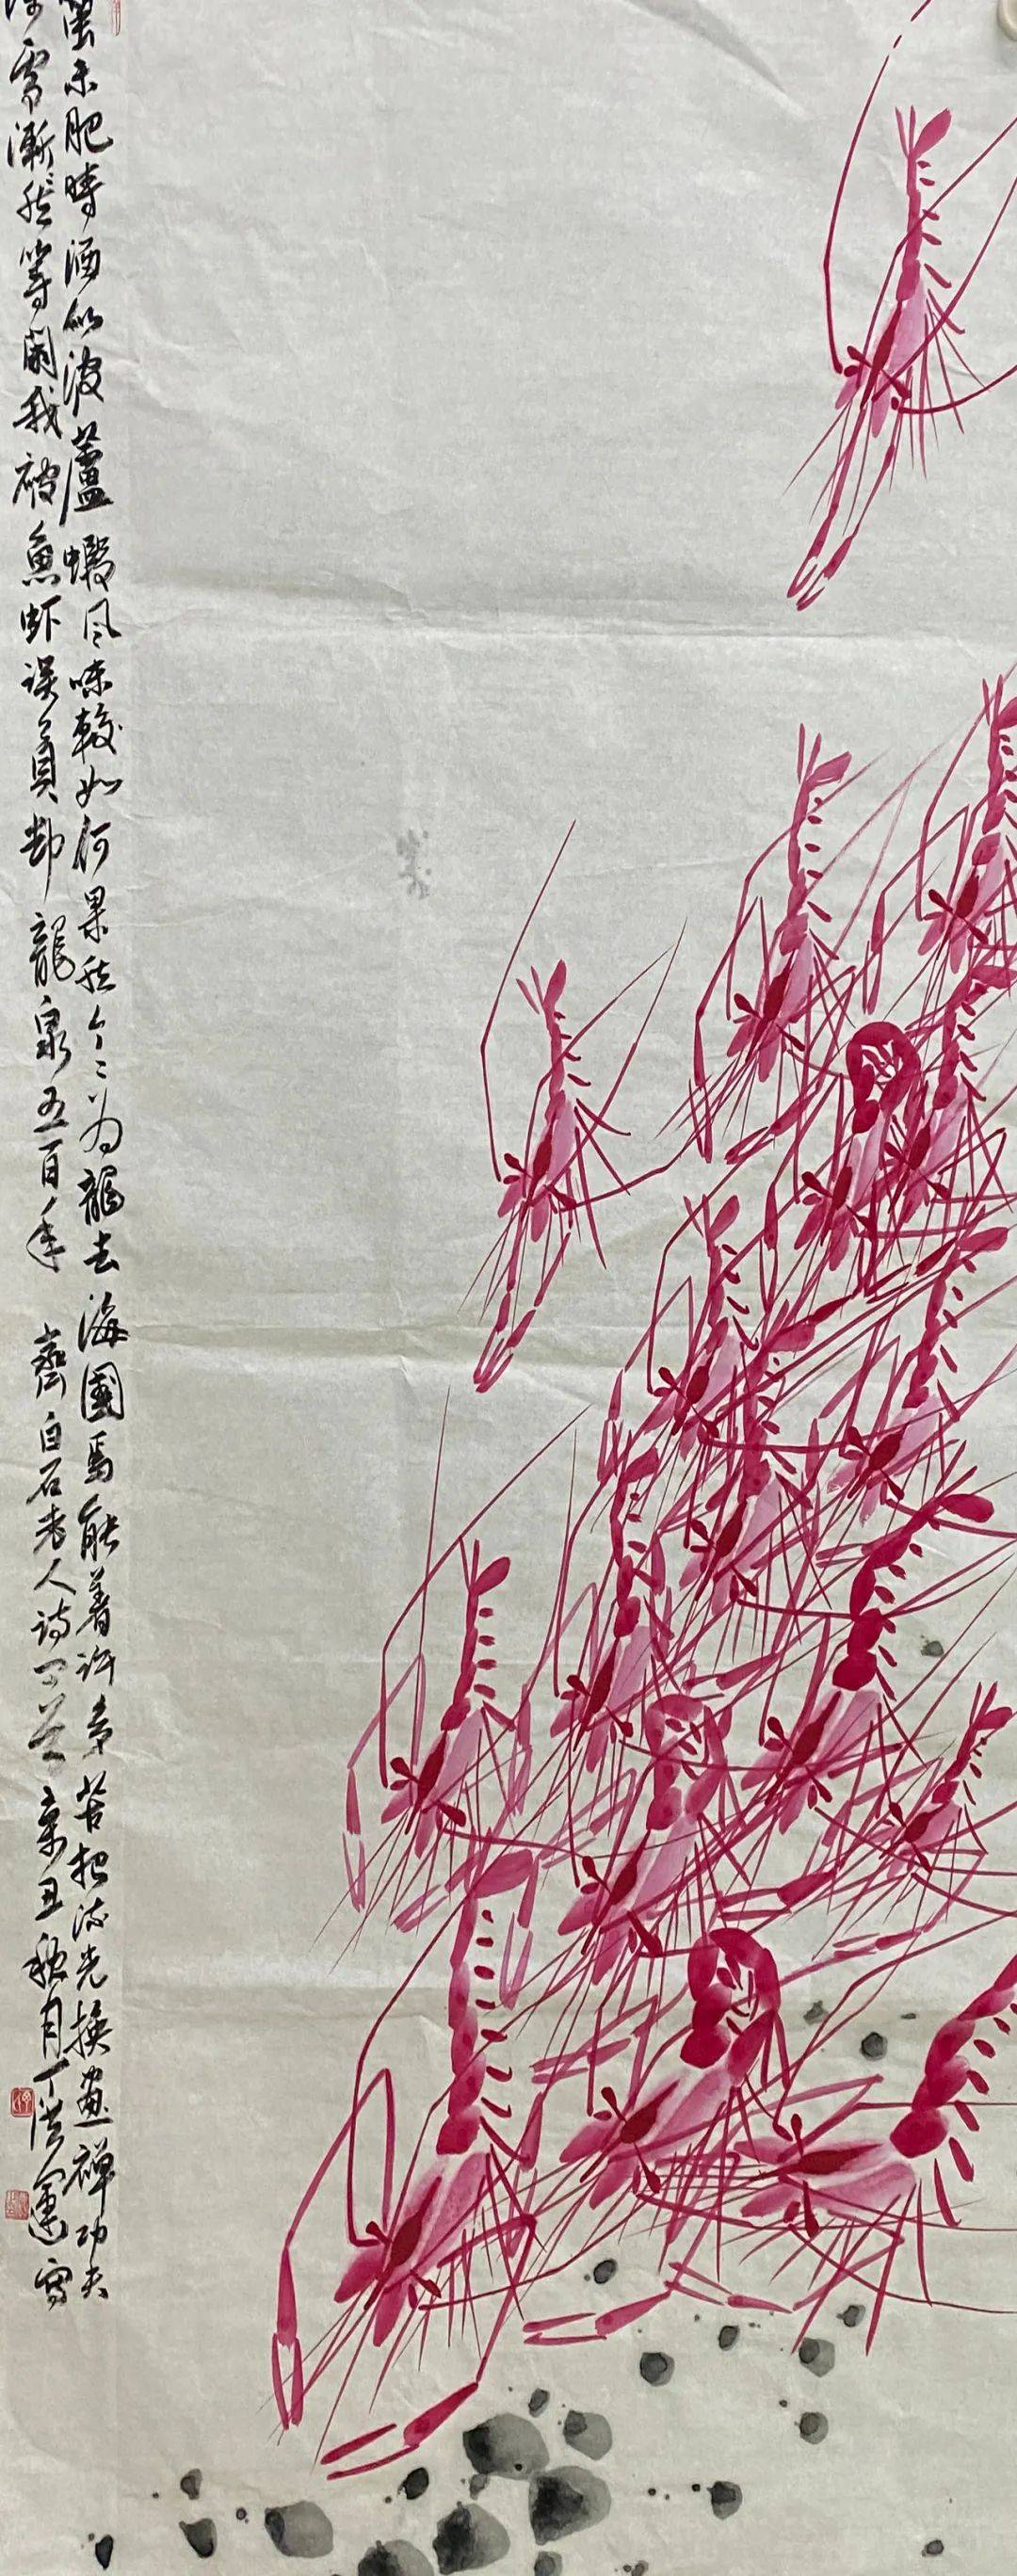 蟹未肥時酒似波蘆蝦風味較如何果然个〻为龍去海國焉能着許多苦把流光换畫禪功夫
深處漸然等閑我被魚虾误負却龍泉五百年 齊白石老人诗 辛丑秋月丁洪運寫